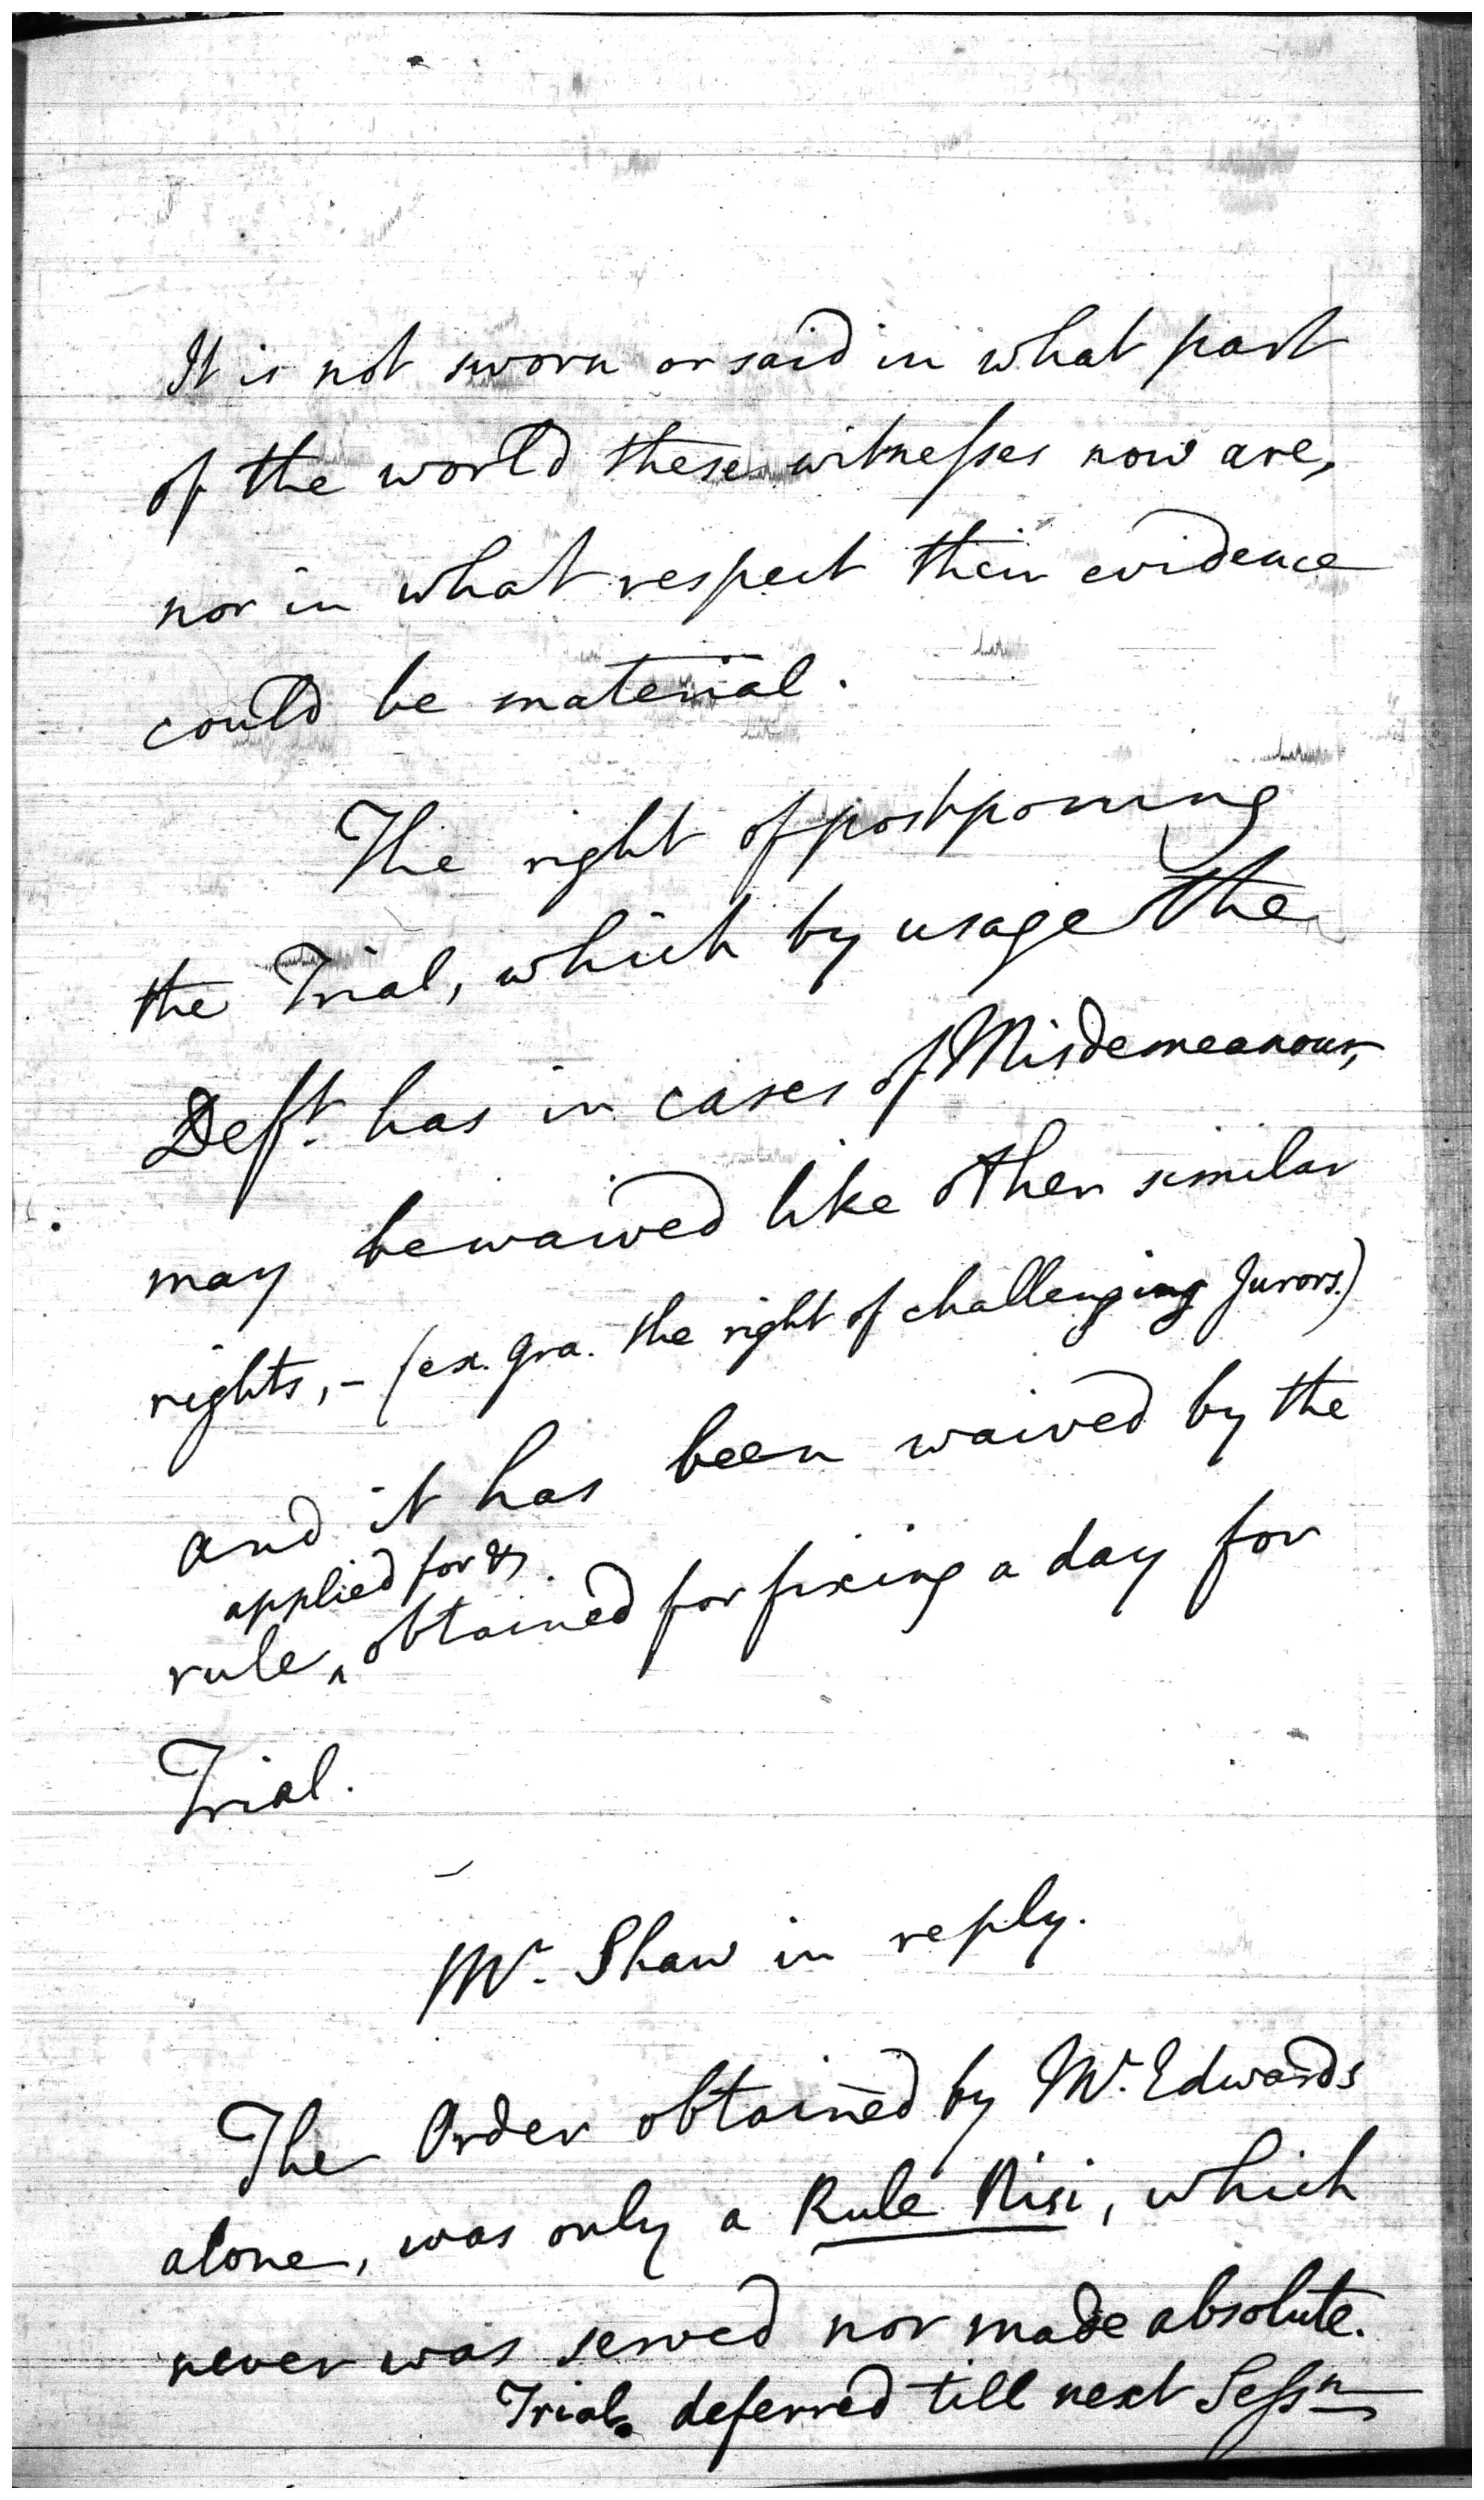 It is not sworn or said in what part
of the world these witnesses now are,
nor in what respect their evidence
could be material.
The right of postponing
the Trial, which by usage the
Deft. has in cases of Misdemeanour,
may be waived like other similar
rights, - (ex. gra. the right of challenging Jurors.)
and it has been waived by the
applied for &
rule ^ obtained for fixing a day for
Trial.
Mr. Shaw in reply.
The Order obtained by Mr. Edwards
alone, was only a Rule Nisi, which
never was served nor made absolute.
Trial deferred till next Sessn